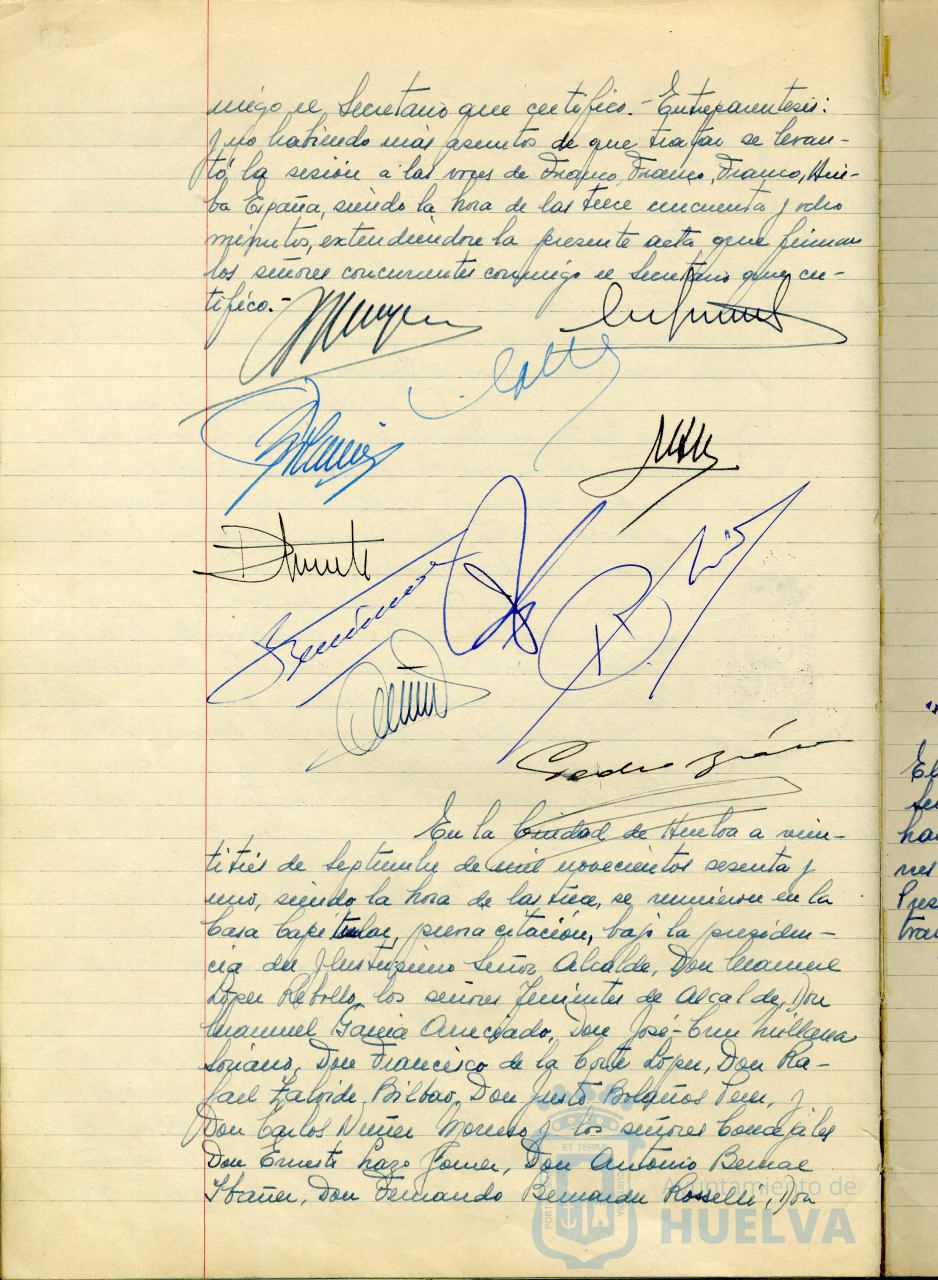 migo el Secretario que certifico.- Entreparentesis:
y no habiendo más asuntos de que tratar se levan-
tó la sesión a las voces de Franco, Franco, Franco, Arri-
ba España, siendo la hora de las trece cincuenta y ocho
minutos, extendiendose la presente acta que firman
los señores concurrentes conmigo el Secretario que cer-
tifico.-
Pedro
En la Ciudad de Huelva a vein-
titrés de Septiembre de mil novecientos sesenta y
uno, siendo la hora de las trece, se reunieron en la
Casa Capitular, previa citación, bajo la presiden-
cia del Ilustrísimo Señor Alcalde, Don Manuel
López Rebollo, los señores Tenientes de Alcalde, Don
Manuel García Arreciado, Don José-Cruz Millana
Soriano, Don Francisco de la Corte López, Don Ra-
fael Zalvide Bilbao, Don Justo Bolaños Pérez, y
Don Carlos Núñez Moreno y los señores Concejales
Don Ernesto Lazo Gómez, Don Antonio Bernal
Ibáñez, Don Fernando Bernardez Rosselli, Don
ET TERRÆ
Ayuntamiento de
HUELVA